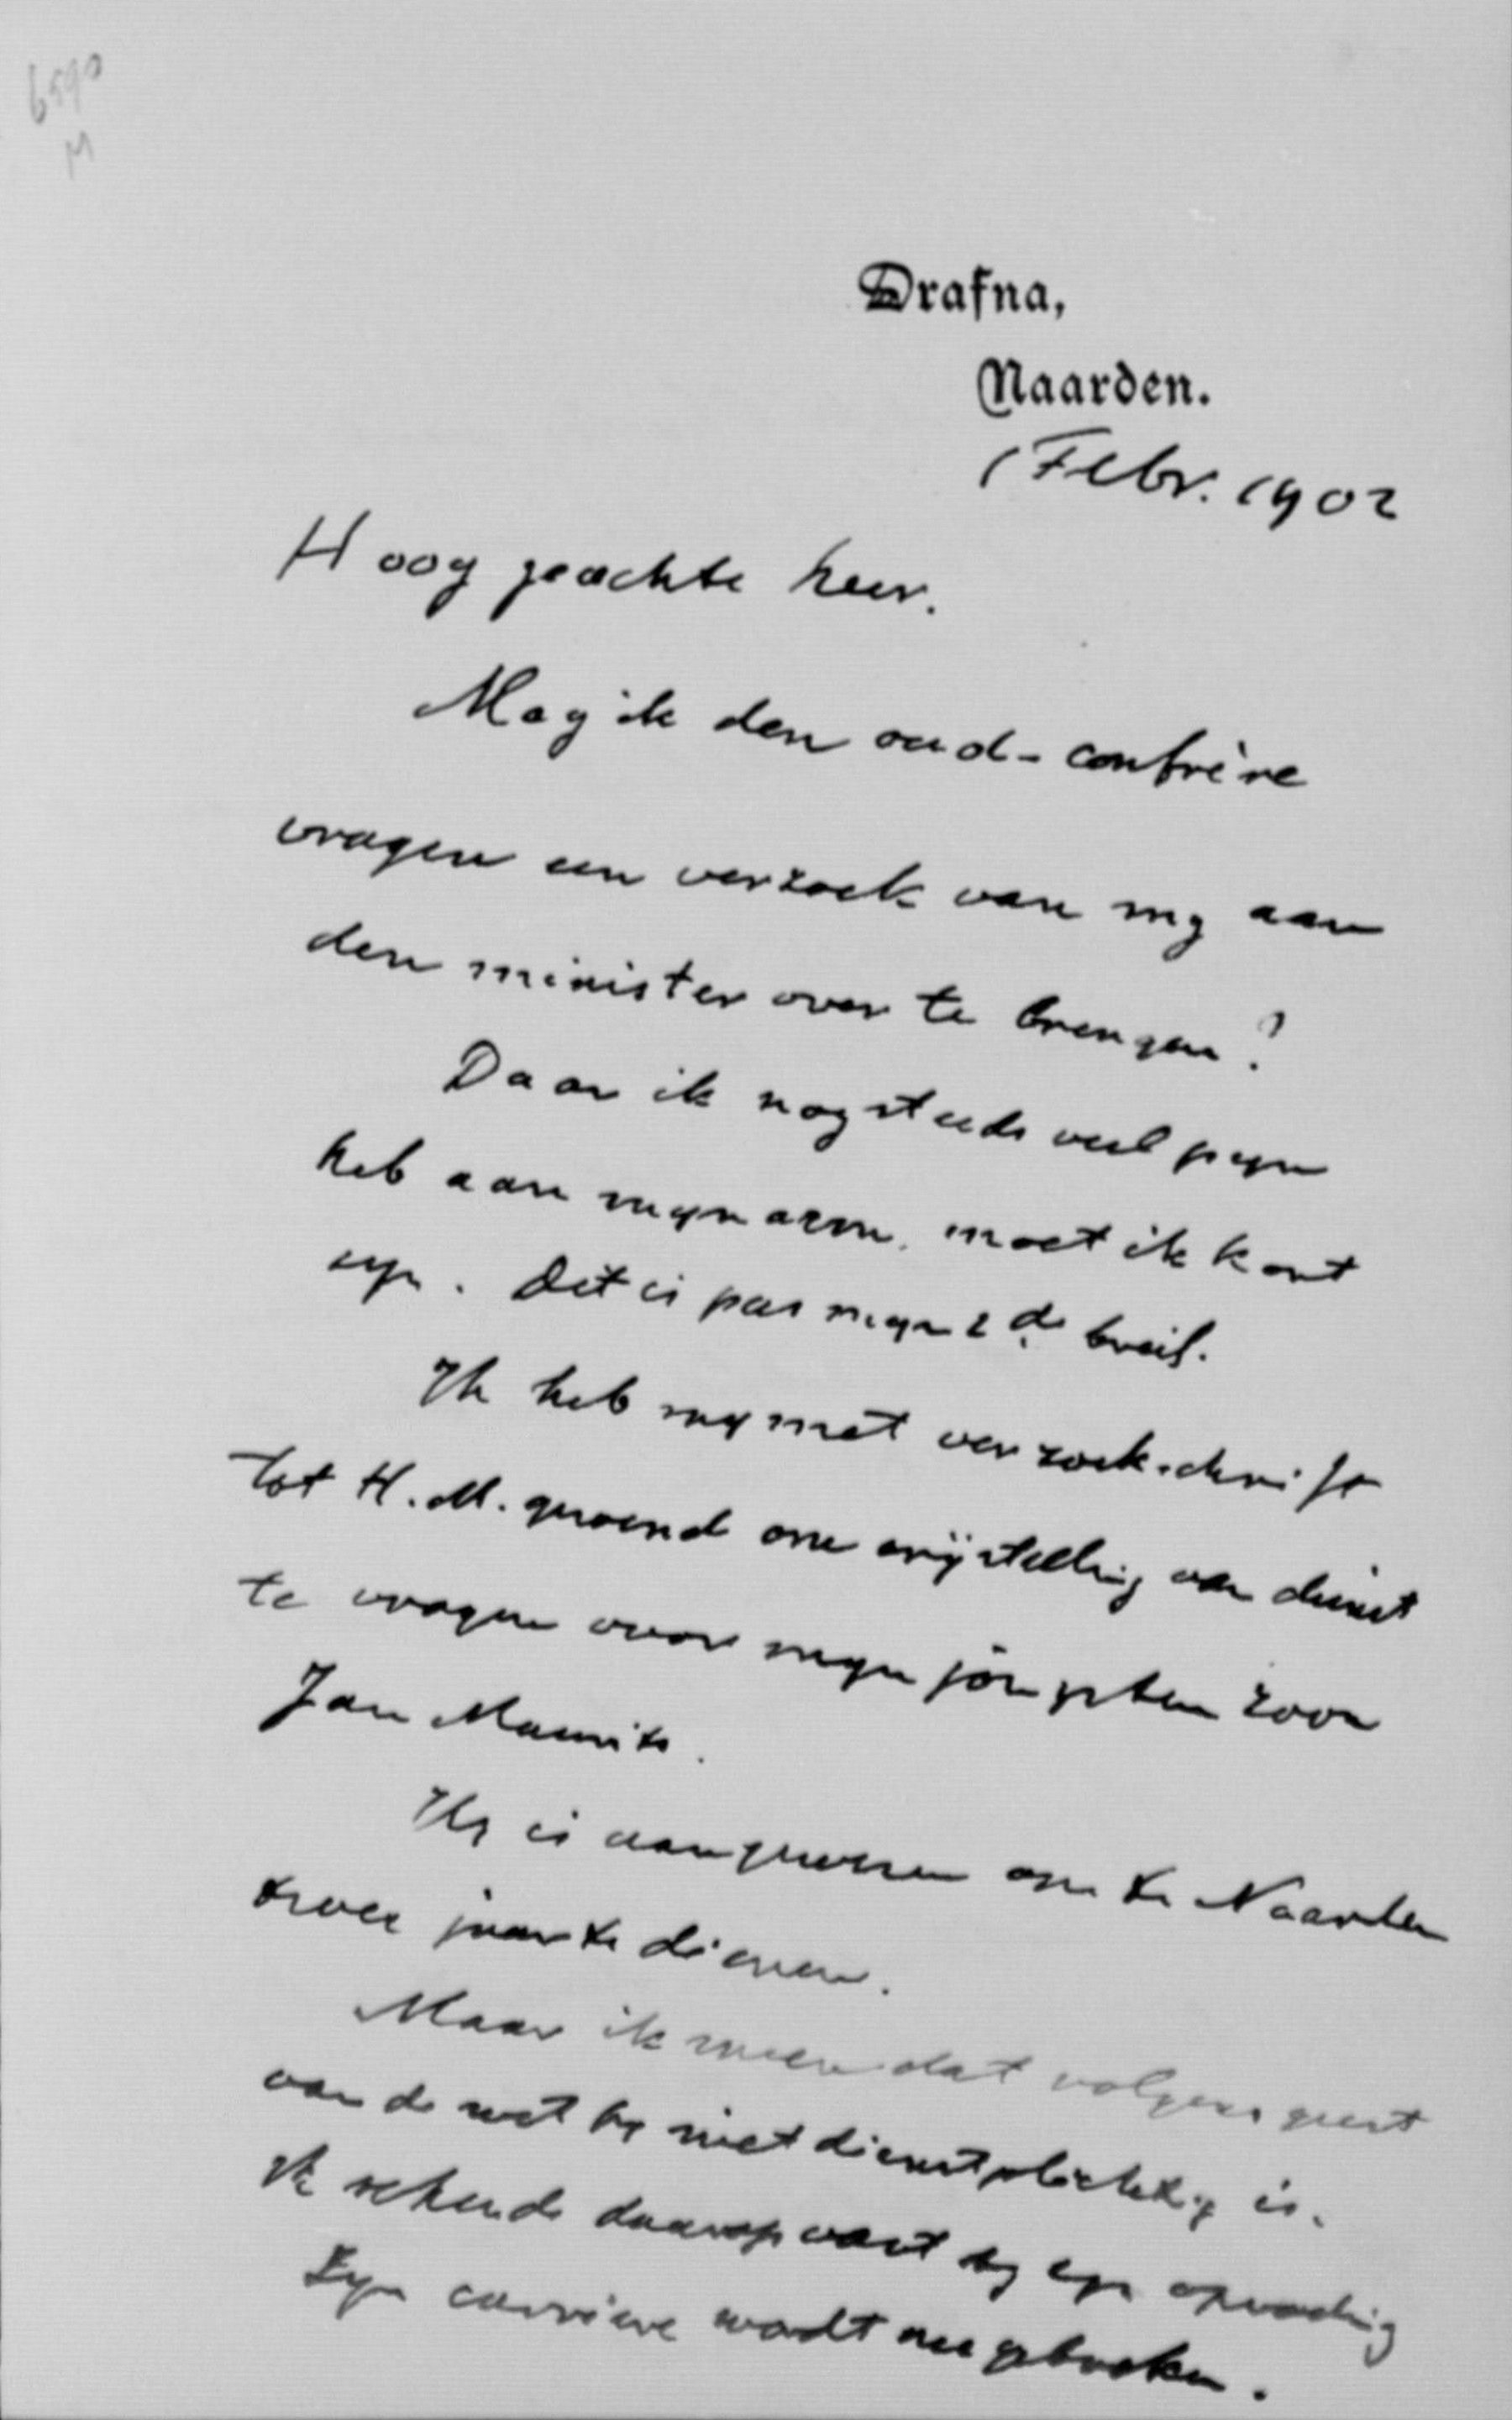 6590
M
Drafna,
Naarden.
1 Febr. 1902
Hoog geachte heer.
Mag ik den oud-confrère
vragen een verzoek van my aan
den minister over te brengen?
Daar ik nog steeds veel pyn
heb aan myn arm, moet ik kort
zyn. Dit is pas myn 2de brief.
Ik heb my met verzoekschrift
tot H.M. gewend om vrijstelling van dienst
te vragen voor myn jongsten zoon
Jan Maurits.
Hy is aangewezen om te Naarden
twee jaar te dienen.
Maar ik meen dat volgens geest
van de wet hy niet dienstplichtig is.
Ik rekende daarop vast by zyn opvoeding
Zyn carrière wordt nu gebroken.